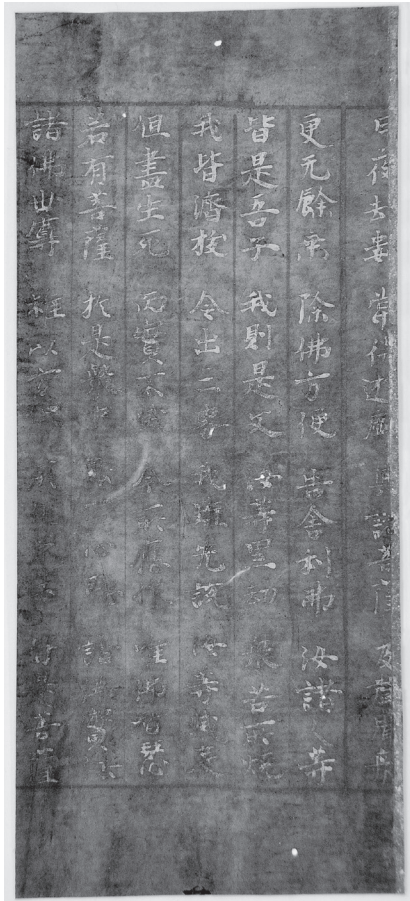 日夜劫數 常得遊戲 與諸菩薩 及聲聞眾
更无餘乘 除佛方便 告舍利弗 汝諸人等
皆是吾子 我則是父 汝等累劫 眾苦所燒
我皆濟拔 令出三界 我雖先說 汝等滅度
但盡生死 而實不滅 今所應作 唯佛智慧
若有菩薩 於是眾中 能一心聽 諸佛實法
諸佛世尊 雖以方便 所化眾生 皆是菩薩